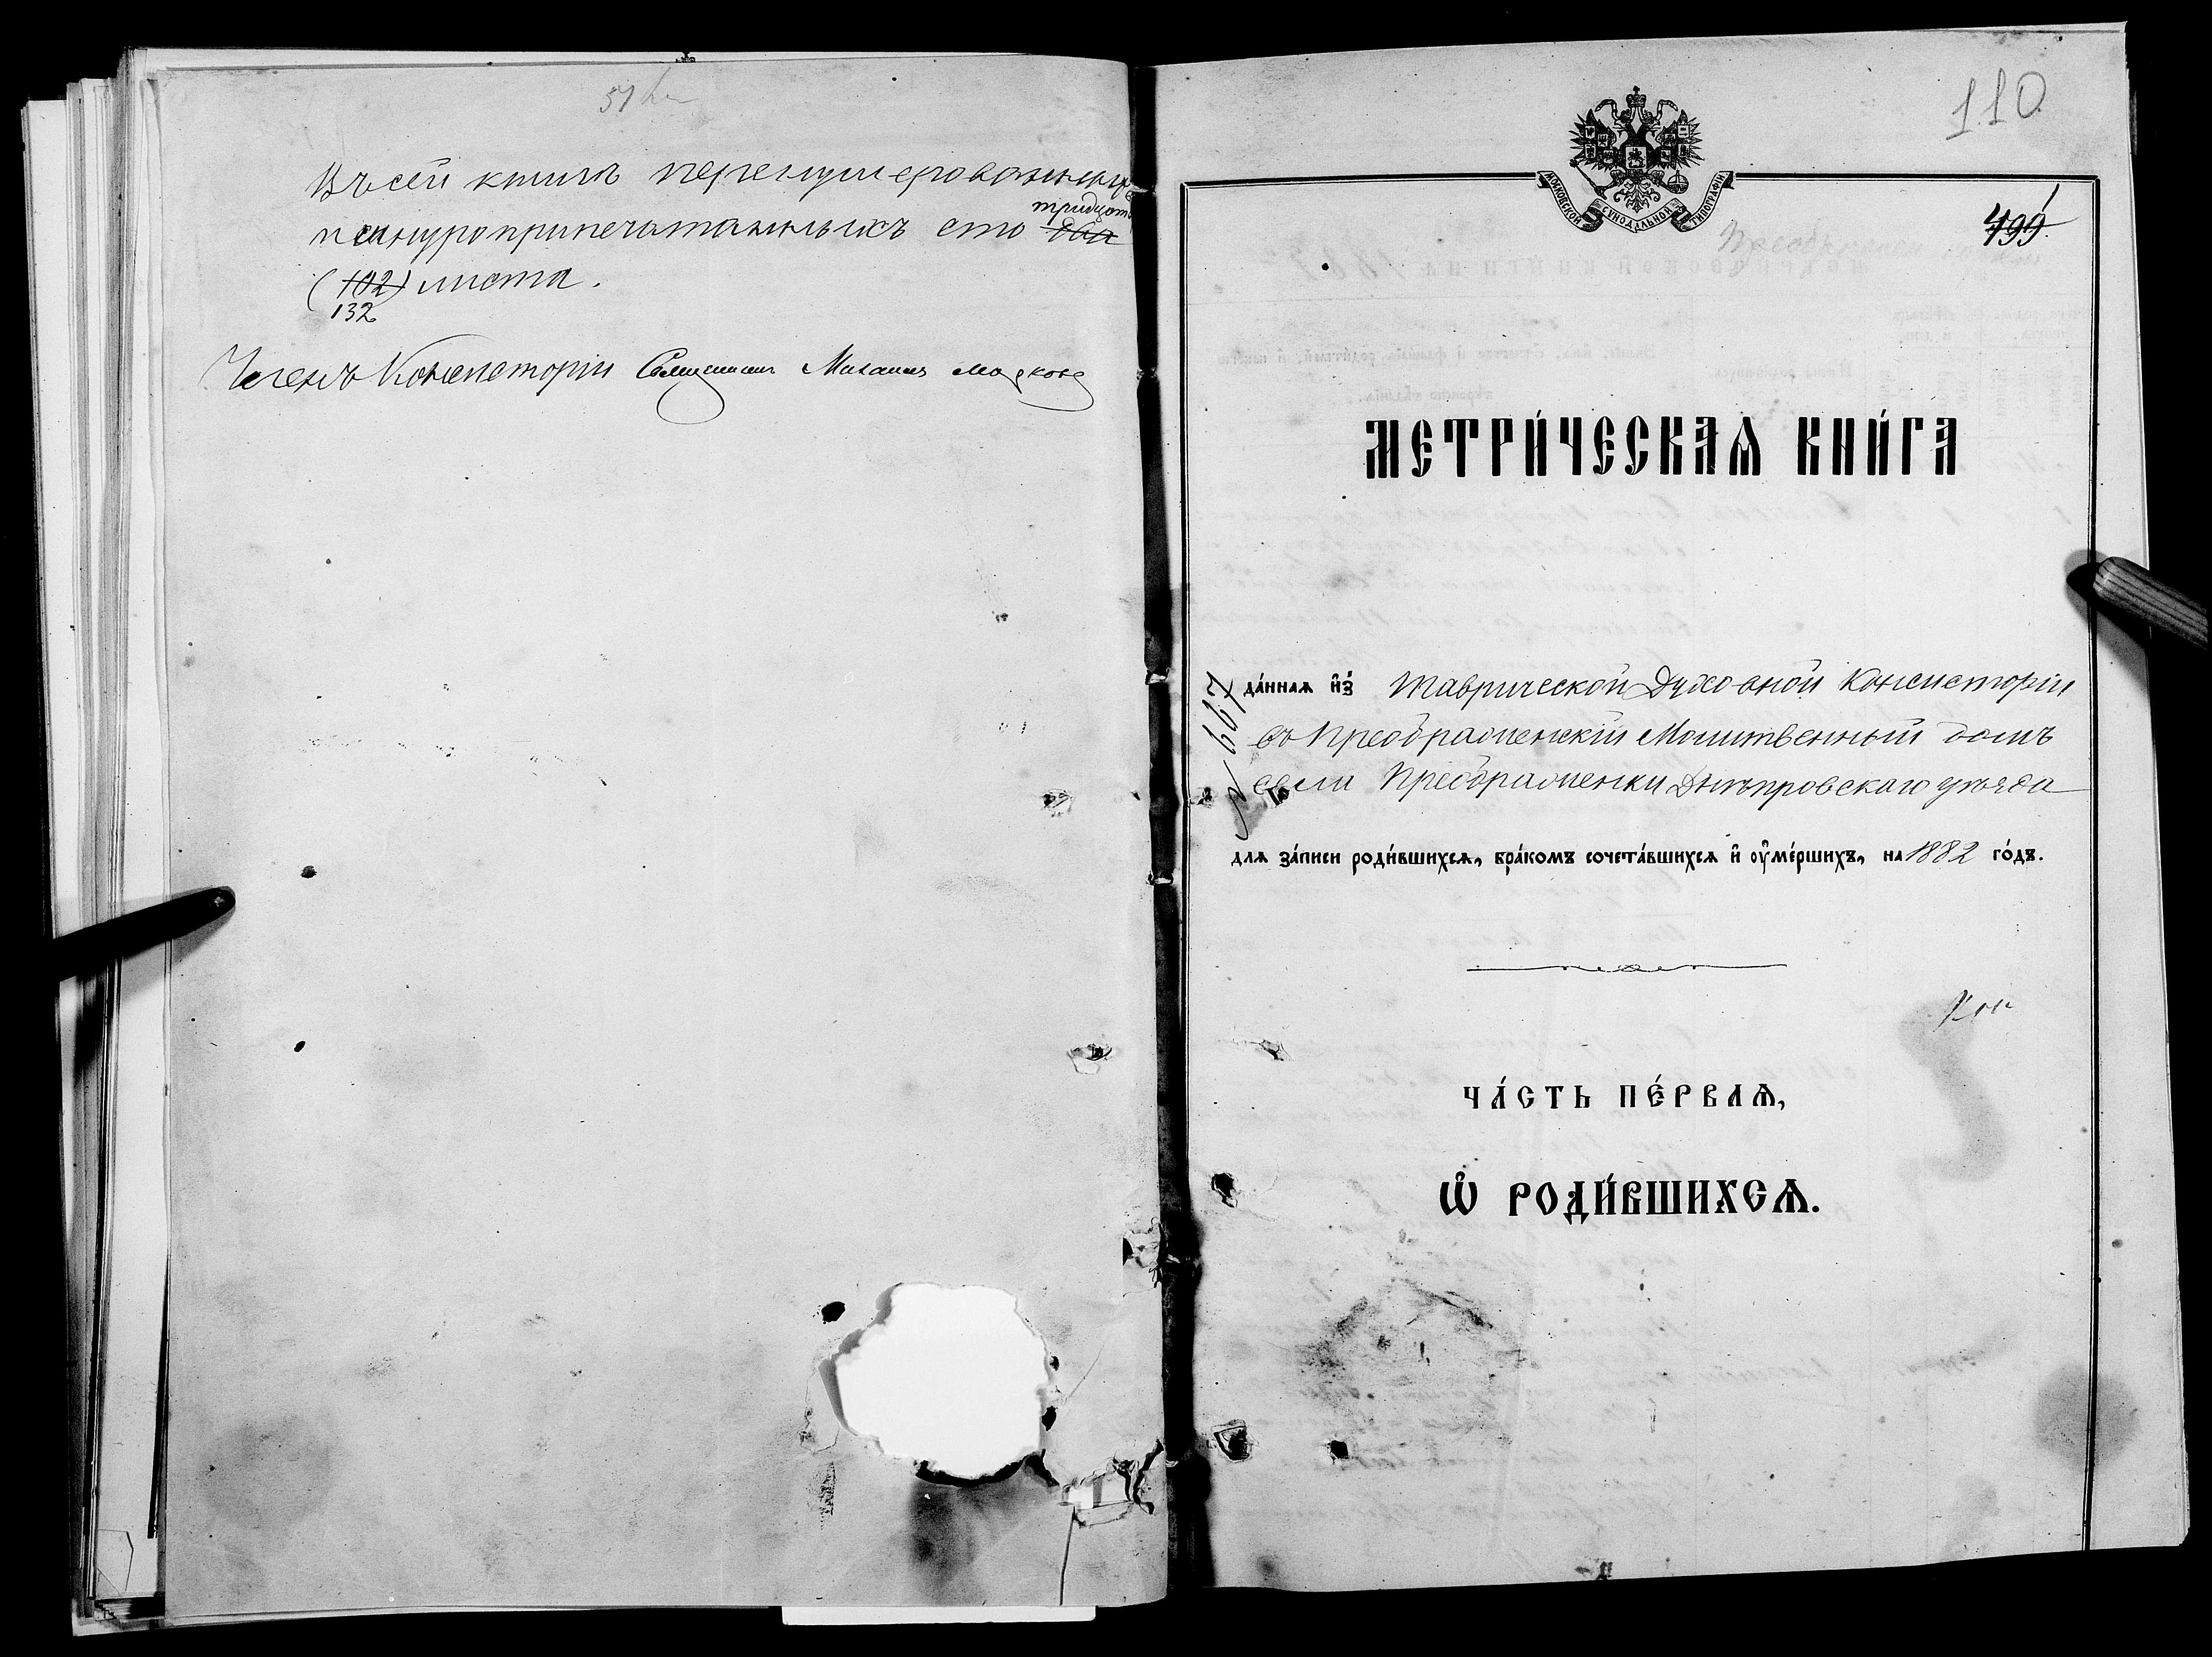 Въ сей книгѣ перенумерованныхъ
тридцать
и шнуроприпечатанныхъ сто два
(102) листа.
132
Членъ Консисторіи Священникъ Михаилъ Марковъ
110
МОСКОВСКОЙ СѴНОДАЛЬНОЙ ТИПОГРАФІИ
499
МЕТРИ́ЧЕСКАѦ КНИ́ГА
№ 667
да́ннаѧ и҆з̾ Таврической Духовной Консисторіи
въ Преображенскій Молитвенный домъ
села Преображенки Днѣпровскаго уѣзда
для за́писи роди́вшихсѧ, бра́комъ сочета́вшихсѧ и҆ ᲂу҆ме́ршихъ, на 1882 го́дъ.
ЧА́СТЬ ПЕ́РВАѦ,
Ѡ҆ РОДИ́ВШИХСѦ.